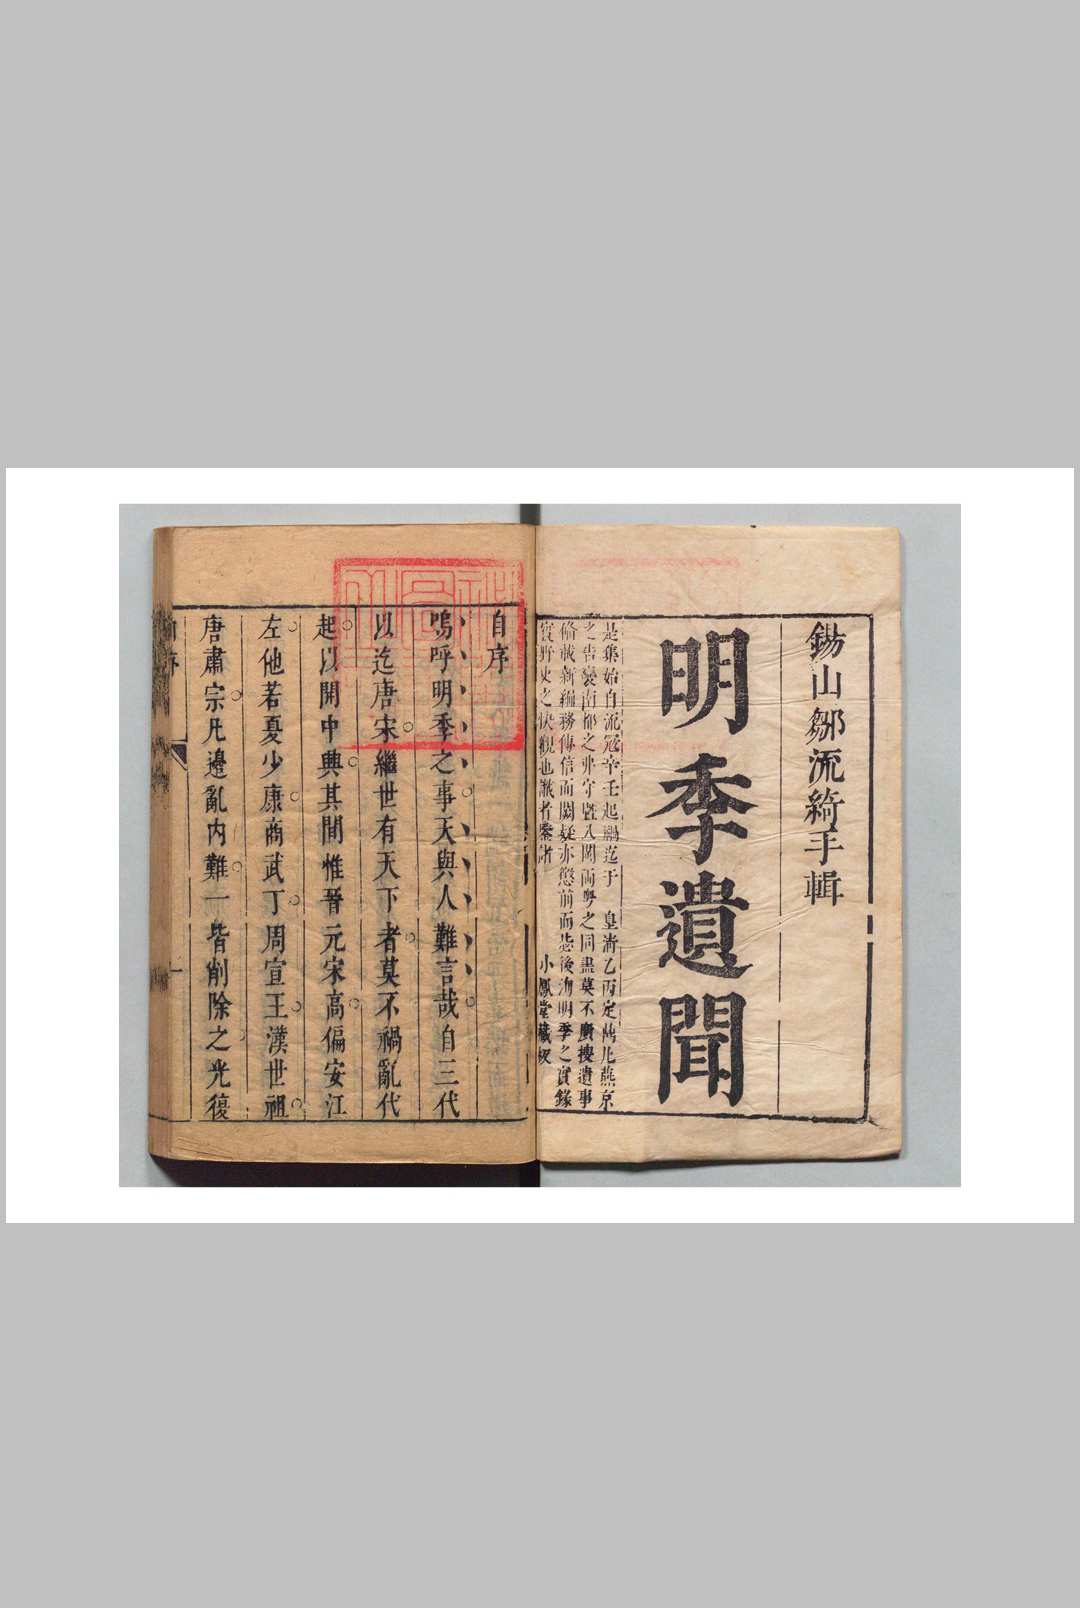 錫山鄒流綺手輯
明季遺聞
是集始自流寇辛壬起禍迄于 皇淸乙丙定鼎凡燕京
之吿變南都之弗守曁入閩兩粤之同盡莫不廣搜遺事
俻載新編務傳信而闕疑亦懲前而毖後洵明季之實錄
實野史之快觀也識者鑒諸 小 堂藏
自序
嗚呼明季之事天與人難言哉自三代
以迄唐宋繼世有天下者莫不禍亂代
起以開中興其間惟晉元宋高偏安江
左他若夏少康商武丁周宣王漢世祖
唐肅宗凡邊亂內難一皆削除之光復